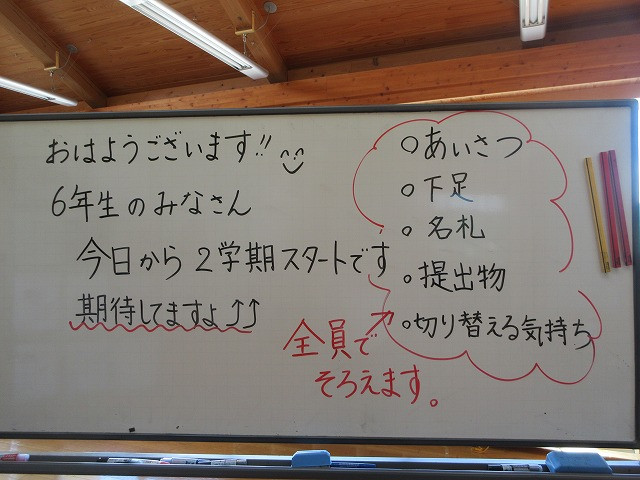 おはようございます!!
6年生のみなさん
今日から2学期スタートです
期待してますよ⤴⤴
○あいさつ
○下足
○名札
○提出物
○切り替える気持ち
全員で
そろえます。